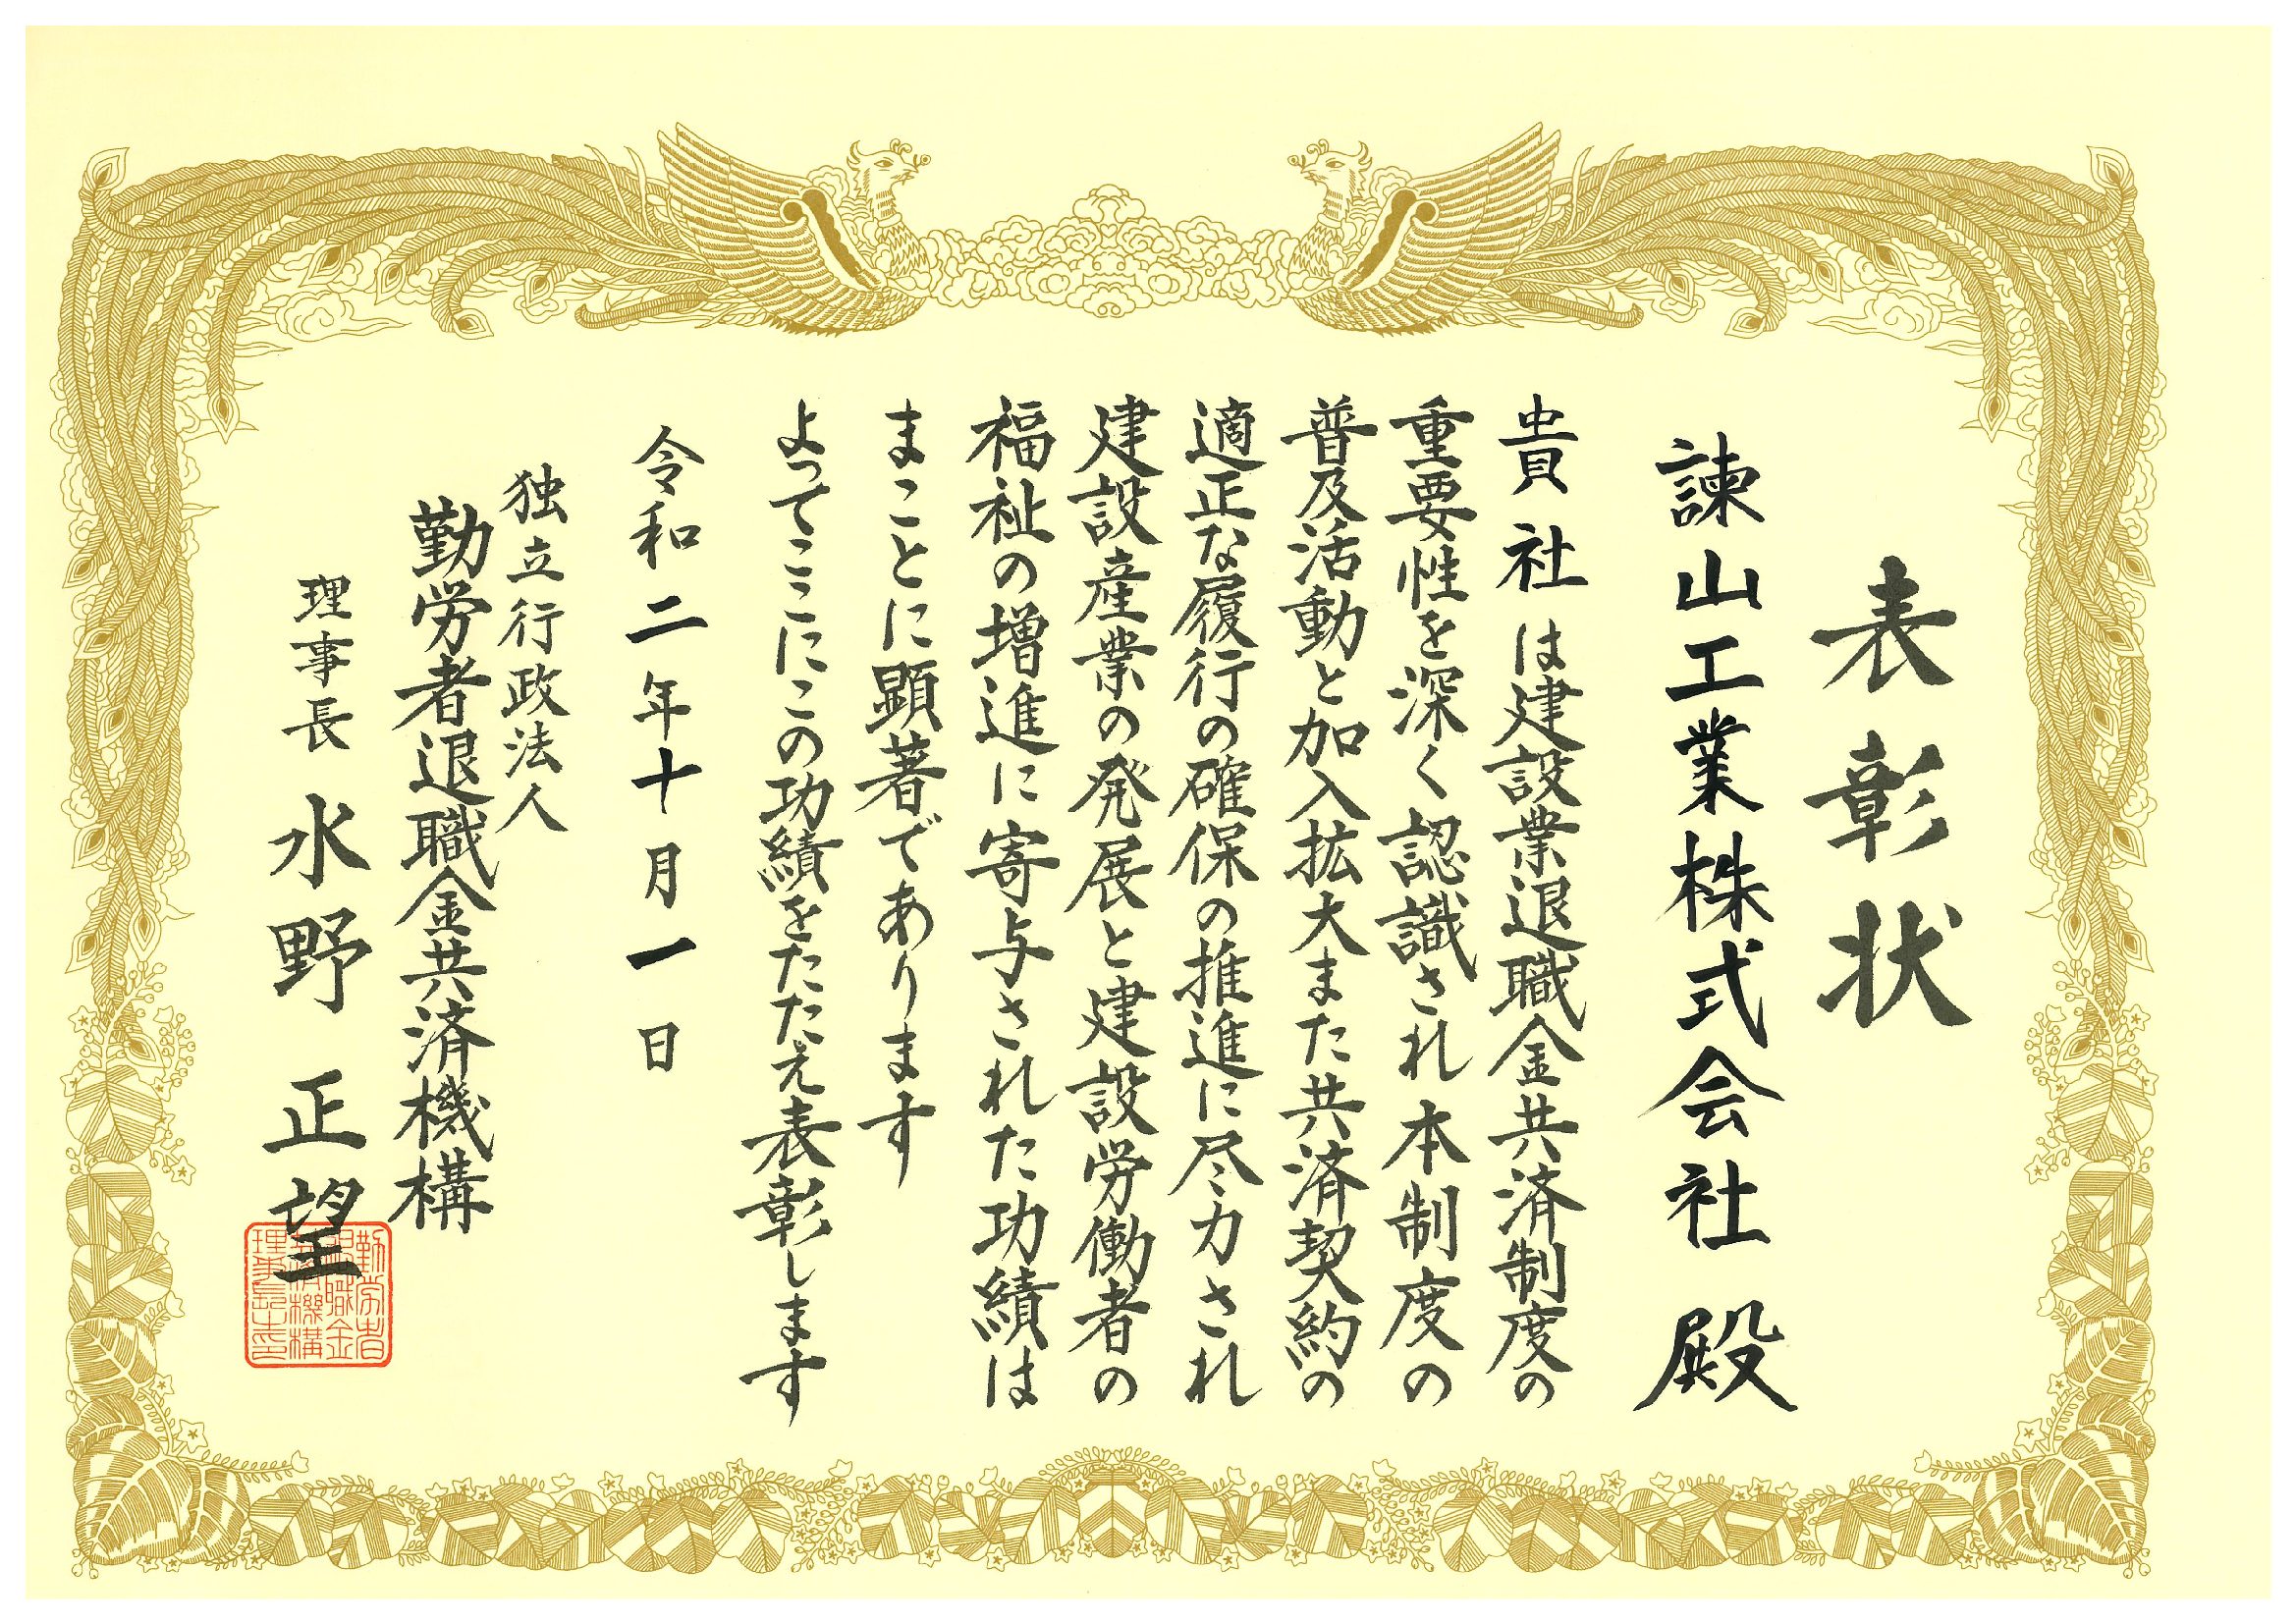 表彰状
諫山工業株式会社 殿
貴社は建設業退職金共済制度の
重要性を深く認識され本制度の
普及活動と加入拡大また共済契約の
適正な履行の確保の推進に尽力され
建設産業の発展と建設労働者の
福祉の増進に寄与された功績は
まことに顕著であります
よってここにこの功績をたたえ表彰します
令和二年十月一日
独立行政法人
勤労者退職金共済機構
理事長 水野正望
勤労者
退職金
共済機構
理事長之印